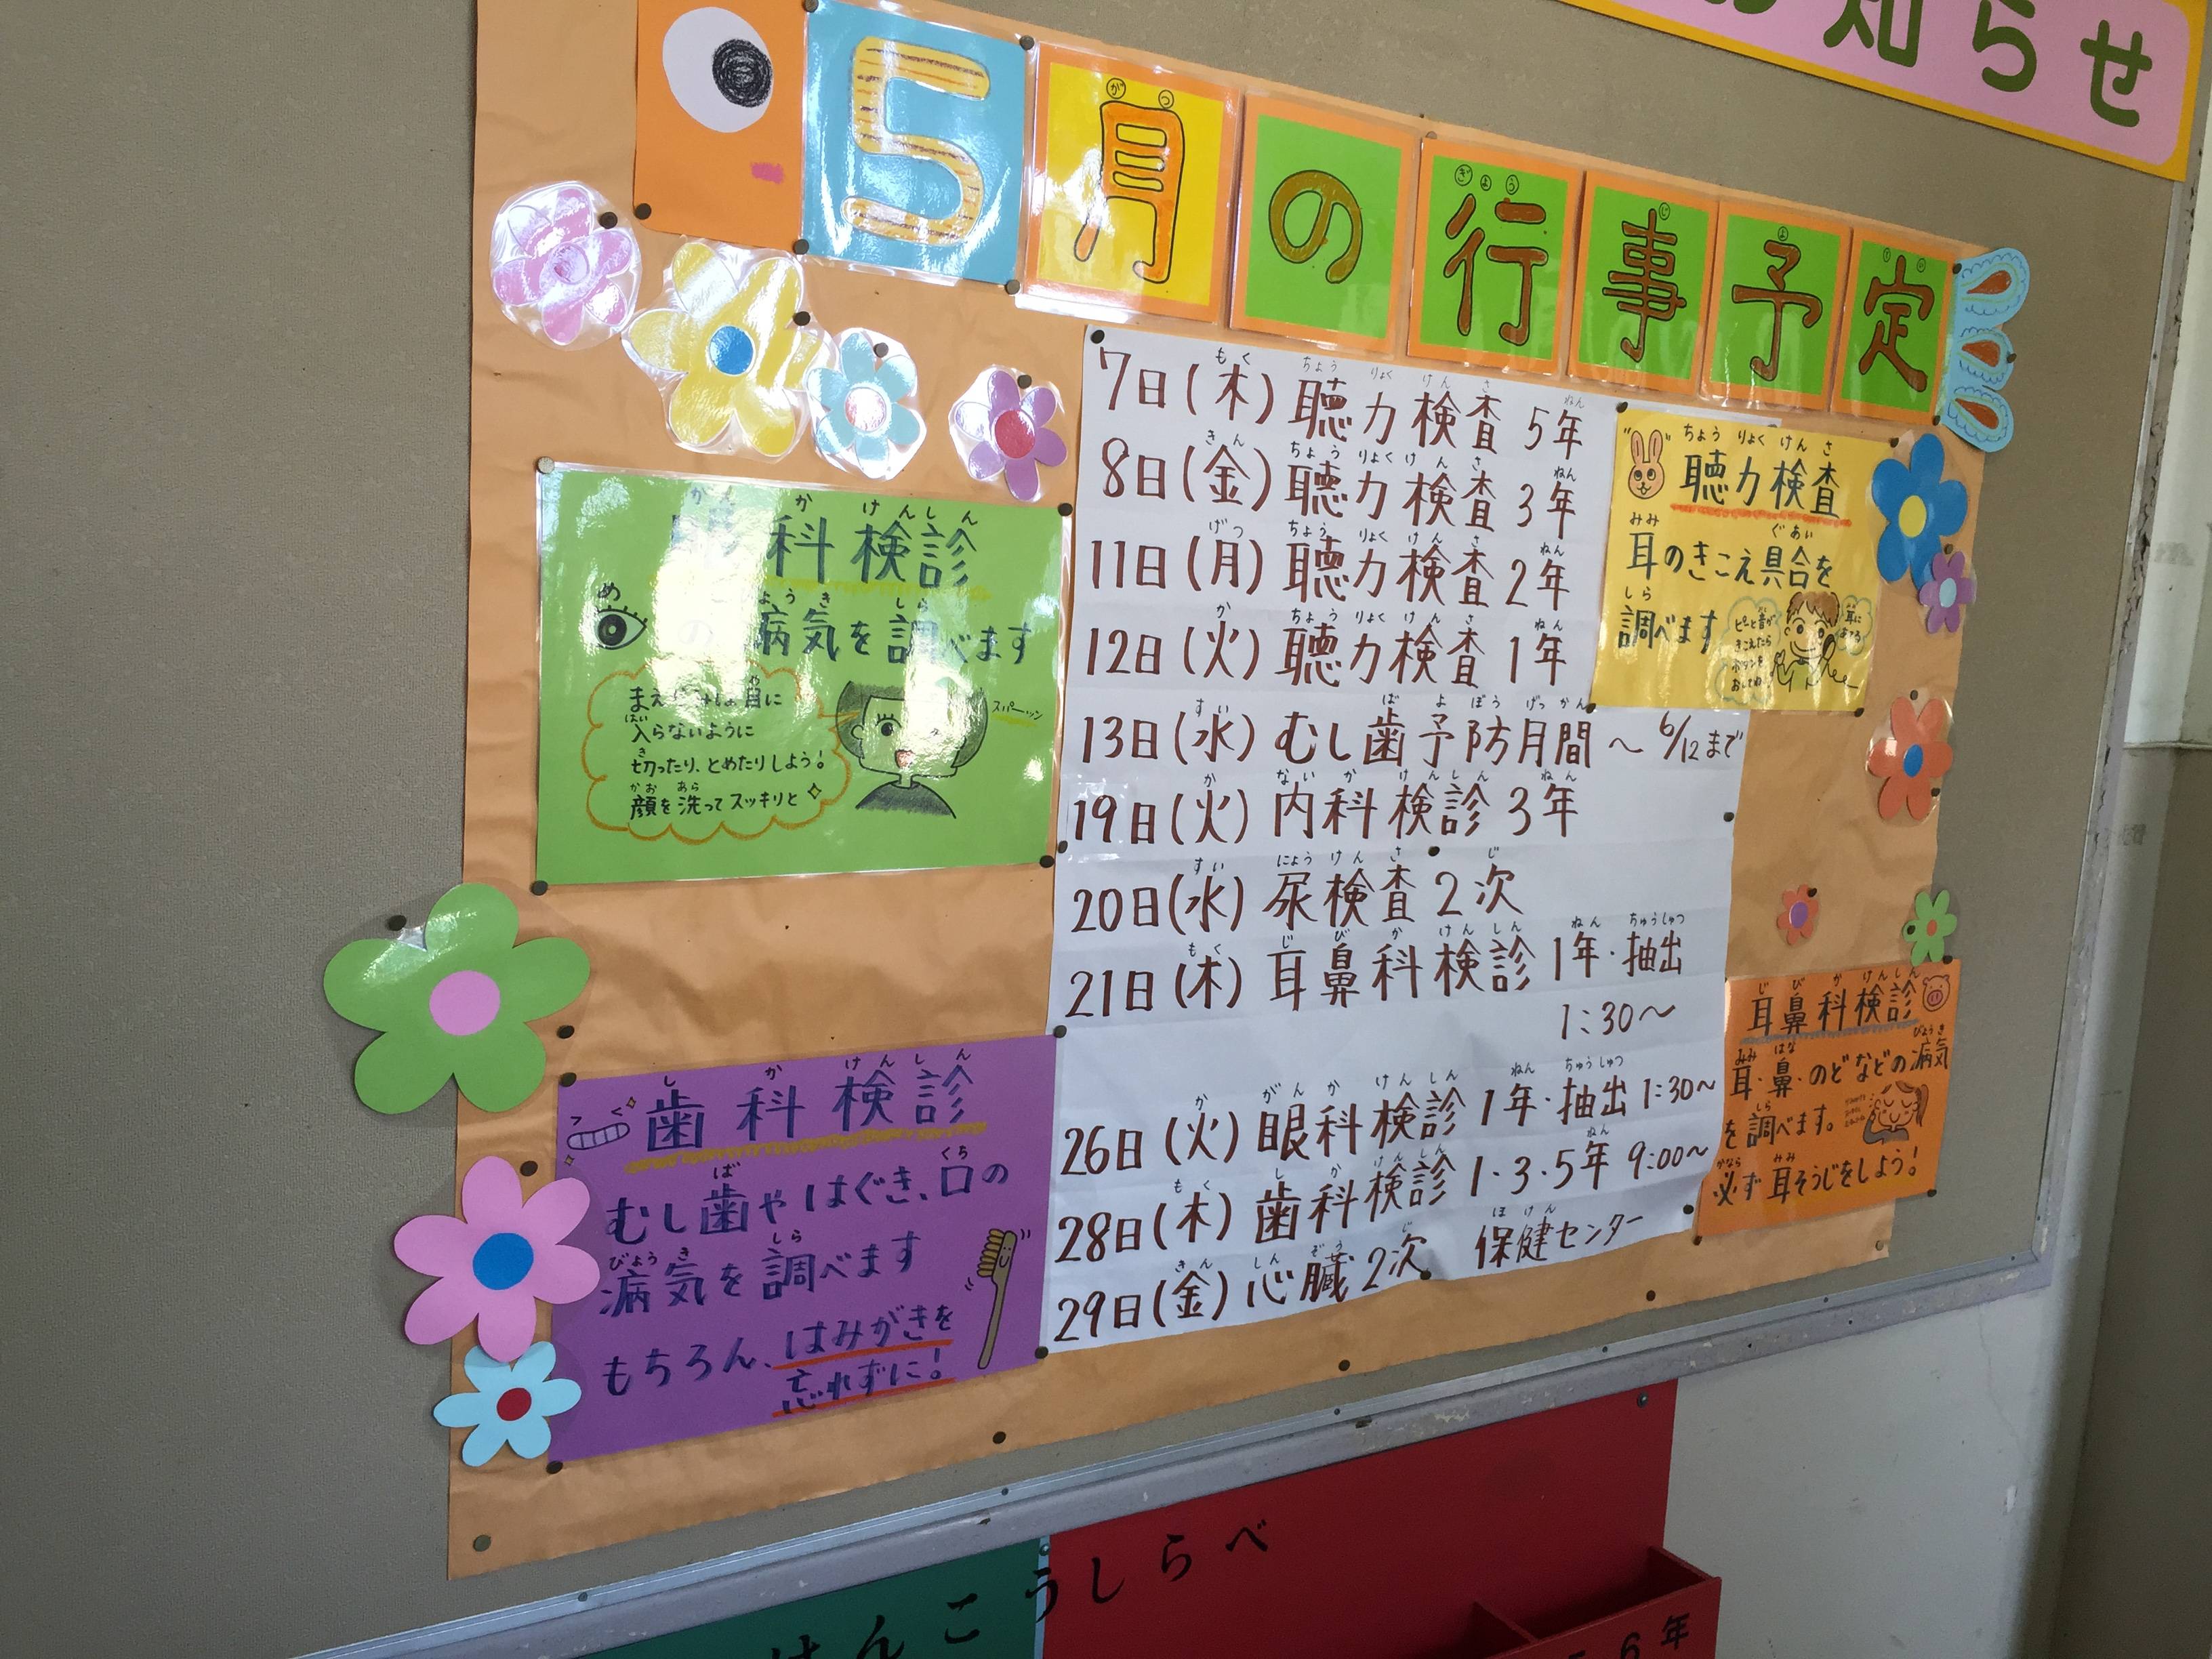 お知らせ
5月の行事予定
がつ
ぎょう
じ
よ
7日(木)聴力検査 5年
8日(金)聴力検査 3年
11日(月)聴力検査 2年
12日(火)聴力検査 1年
13日(水)むし歯予防月間 〜 6/12まで
19日(火)内科検診 3年
20日(水)尿検査 2次
21日(木)耳鼻科検診 1年・抽出
1:30〜
26日(火)眼科検診 1年・抽出 1:30〜
28日(木)歯科検診 1・3・5年 9:00〜
29日(金)心臓2次 保健センター
科検診
め
の病気を調べます
目に
入らないように
切ったり、とめたりしよう!
顔を洗ってスッキリと
スパーッン
歯科検診
むし歯やはぐき、口の
病気を調べます
もちろん、はみがきを
忘れずに!
聴力検査
耳のきこえ具合を
調べます
ピッと音が
きこえたら
ボタンを
おしてね
耳に
あてる
耳鼻科検診
耳・鼻・のどなどの病気
を調べます。
必ず耳そうじをしよう!
けんこうしらべ
6年